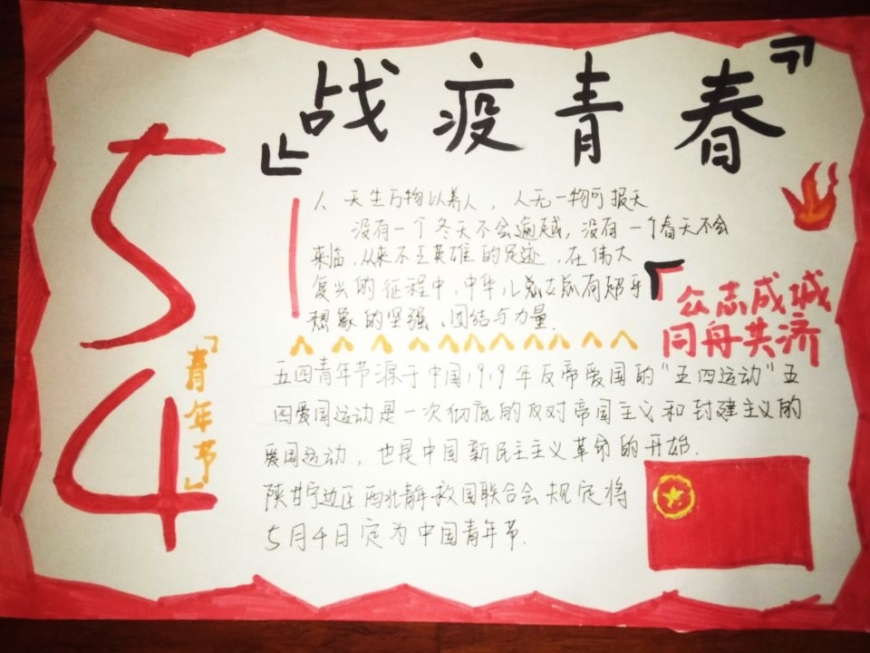 『战疫青春』
54
「青年节」
人 天生万物以养人，人无一物可报天
没有一个冬天不会逾越，没有一个春天不会
来临，从来不乏英雄的足迹，在伟大
复兴的征程中，中华儿女
想象的坚强、团结与力量.
众志成城
同舟共济
五四青年节源于中国1919年反帝爱国的“五四运动”五
四爱国运动是一次彻底的反对帝国主义和封建主义的
爱国运动，也是中国新民主主义革命的开始.
陕甘宁边区西北青年救国联合会规定将
5月4日定为中国青年节.